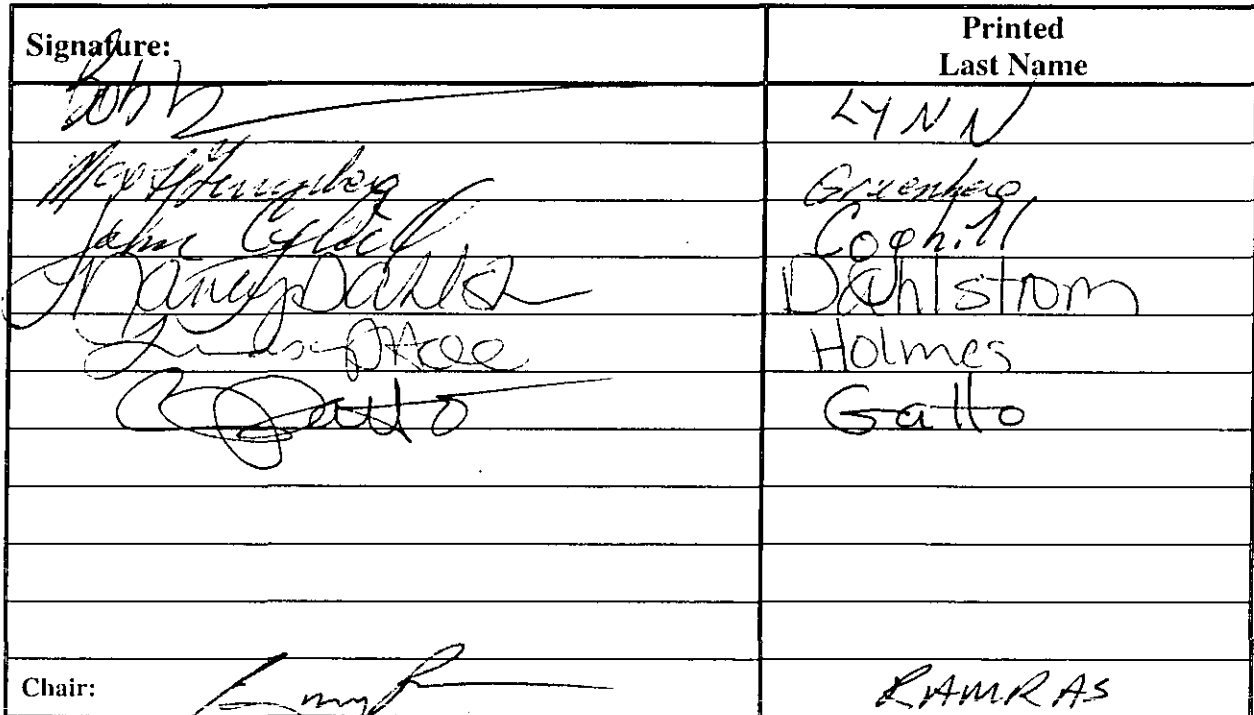 Signature: Printed
Last Name
Bob LYNN
Gruenberg
John Coghill Coghill
Nancy Dahlstrom
Lindsey Holmes Holmes
Gatto Gatto
Chair: RAMRAS